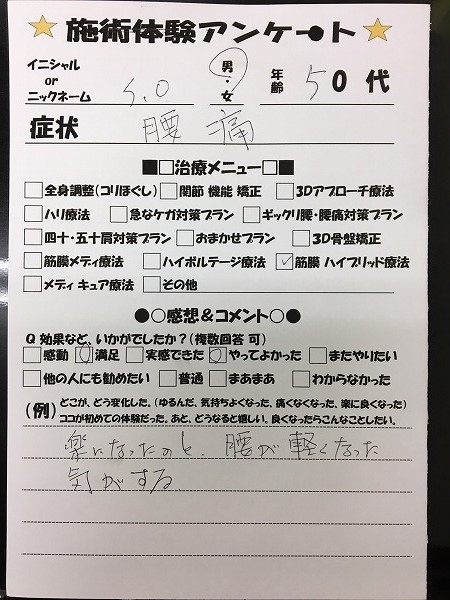 ★施術体験アンケート★
イニシャル or ニックネーム S.O 男・女 年齢 50代
症状 腰痛
■□治療メニュー□■
□全身調整(コリほぐし) □関節 機能 矯正 □3Dアプローチ療法
□ハリ療法 □急なケガ対策プラン □ギックリ腰・腰痛対策プラン
□四十・五十肩対策プラン □おまかせプラン □3D骨盤矯正
□筋膜メディ療法 □ハイボルテージ療法 ☑筋膜 ハイブリッド療法
□メディ キュア療法 □その他
●○感想&コメント○●
Q 効果など、いかがでしたか?(複数回答 可)
□感動 □満足 □実感できた □やってよかった □またやりたい
□他の人にも勧めたい □普通 □まあまあ □わからなかった
(例) どこが、どう変化した。(ゆるんだ、気持ちよくなった、痛くなくなった、楽に良くなった)
ココが初めての体験だった。あと、どうなると嬉しい。良くなったらこんなことしたい。
楽になったのと、腰が軽くなった
気がする